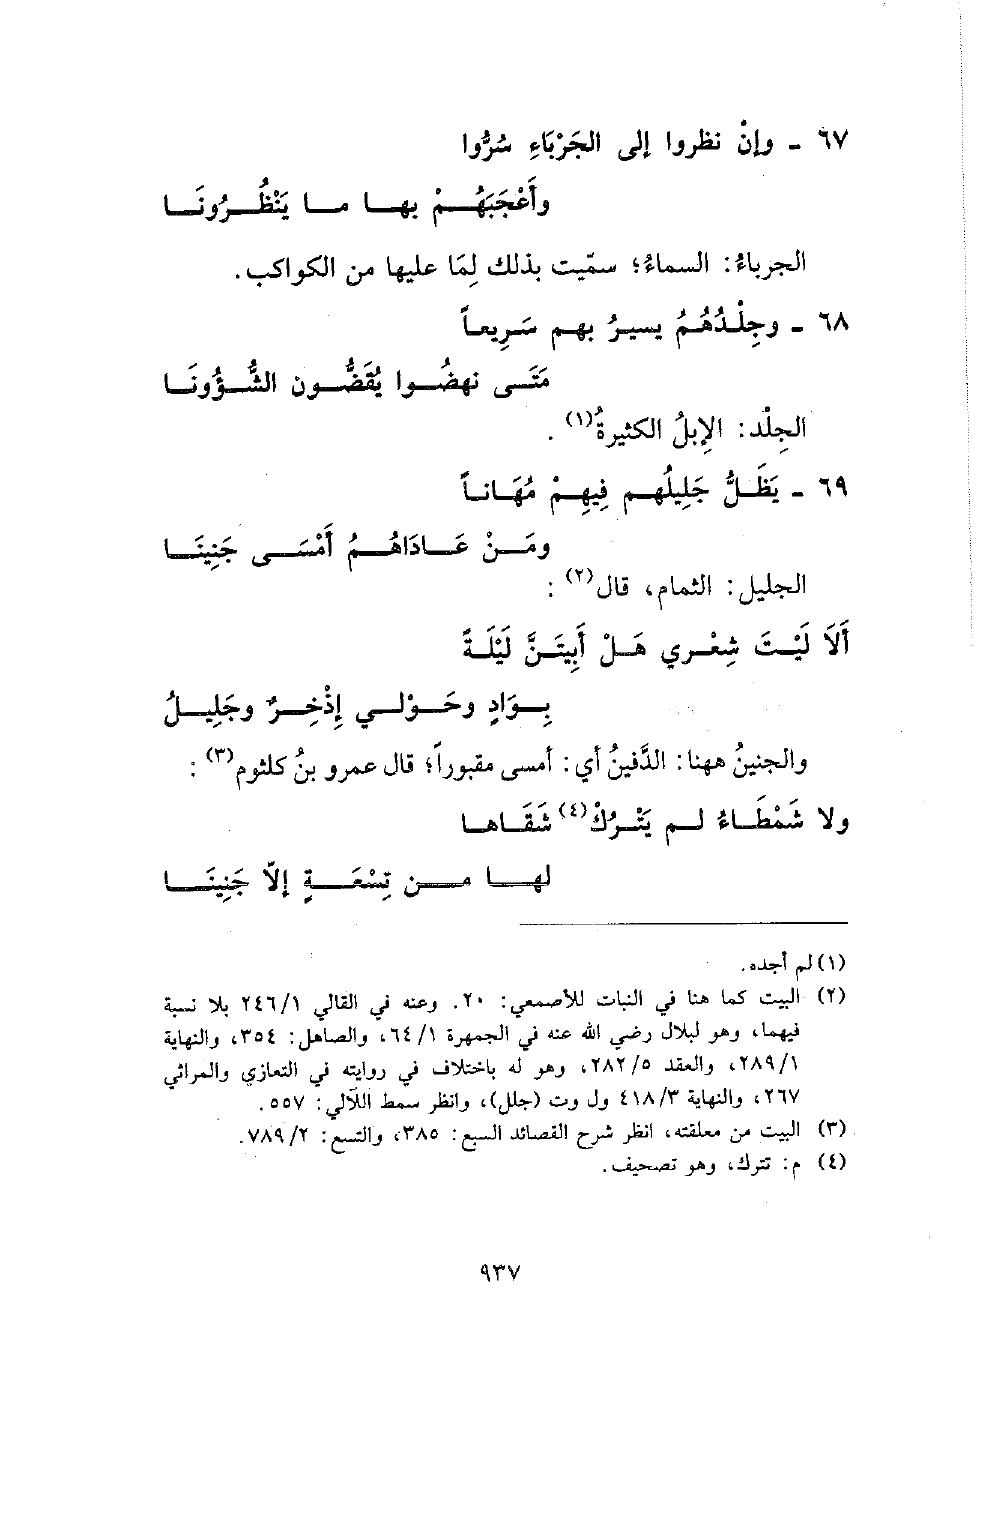 ٦٧ ـ وإنْ نظروا إلى الجَرْبَاءِ سُرُّوا
وأَعْجَبَهُمْ بها ما يَنْظُرُونَا
الجرباءُ: السماءُ؛ سمّيت بذلك لِمَا عليها من الكواكب.
٦٨ ـ وجِلْدُهُمُ يسيرُ بهم سَرِيعاً
مَتَى نهضُوا يُقَضُّون الشُّؤُونَا
الجِلْد: الإبلُ الكثيرةُ(١) .
٦٩ ـ يَظَلُّ جَلِيلُهم فِيهِمْ مُهَاناً
ومَنْ عَادَاهُمُ أَمْسَى جَنِينَا
الجليل: الثمام، قال(٢) :
أَلَا لَيْتَ شِعْري هَلْ أَبِيتَنَّ لَيْلَةً
بِوَادٍ وحَوْلي إِذْخِرٌ وجَلِيلُ
والجنينُ ههنا: الدَّفينُ أي: أمسى مقبوراً؛ قال عمرو بنُ كلثوم(٣) :
ولا شَمْطَاءُ لم يَتْرُكْ(٤) شَقَاها
لها من تِسْعَةٍ إلّا جَنِينَا
(١) لم أجده.
(٢) البيت كما هنا في النبات للأصمعي: ٢٠. وعنه في القالي ٢٤٦/١ بلا نسبة
فيهما، وهو لبلال رضي الله عنه في الجمهرة ٦٤/١، والصاهل: ٣٥٤، والنهاية
٢٨٩/١، والعقد ٢٨٢/٥، وهو له باختلاف في روايته في التعازي والمراثي
٢٦٧، والنهاية ٤١٨/٣ ول وت (جلل)، وانظر سمط اللآلي: ٥٥٧.
(٣) البيت من معلقته، انظر شرح القصائد السبع: ٣٨٥، والتسع: ٧٨٩/٢.
(٤) م: تترك، وهو تصحيف.
٩٣٧